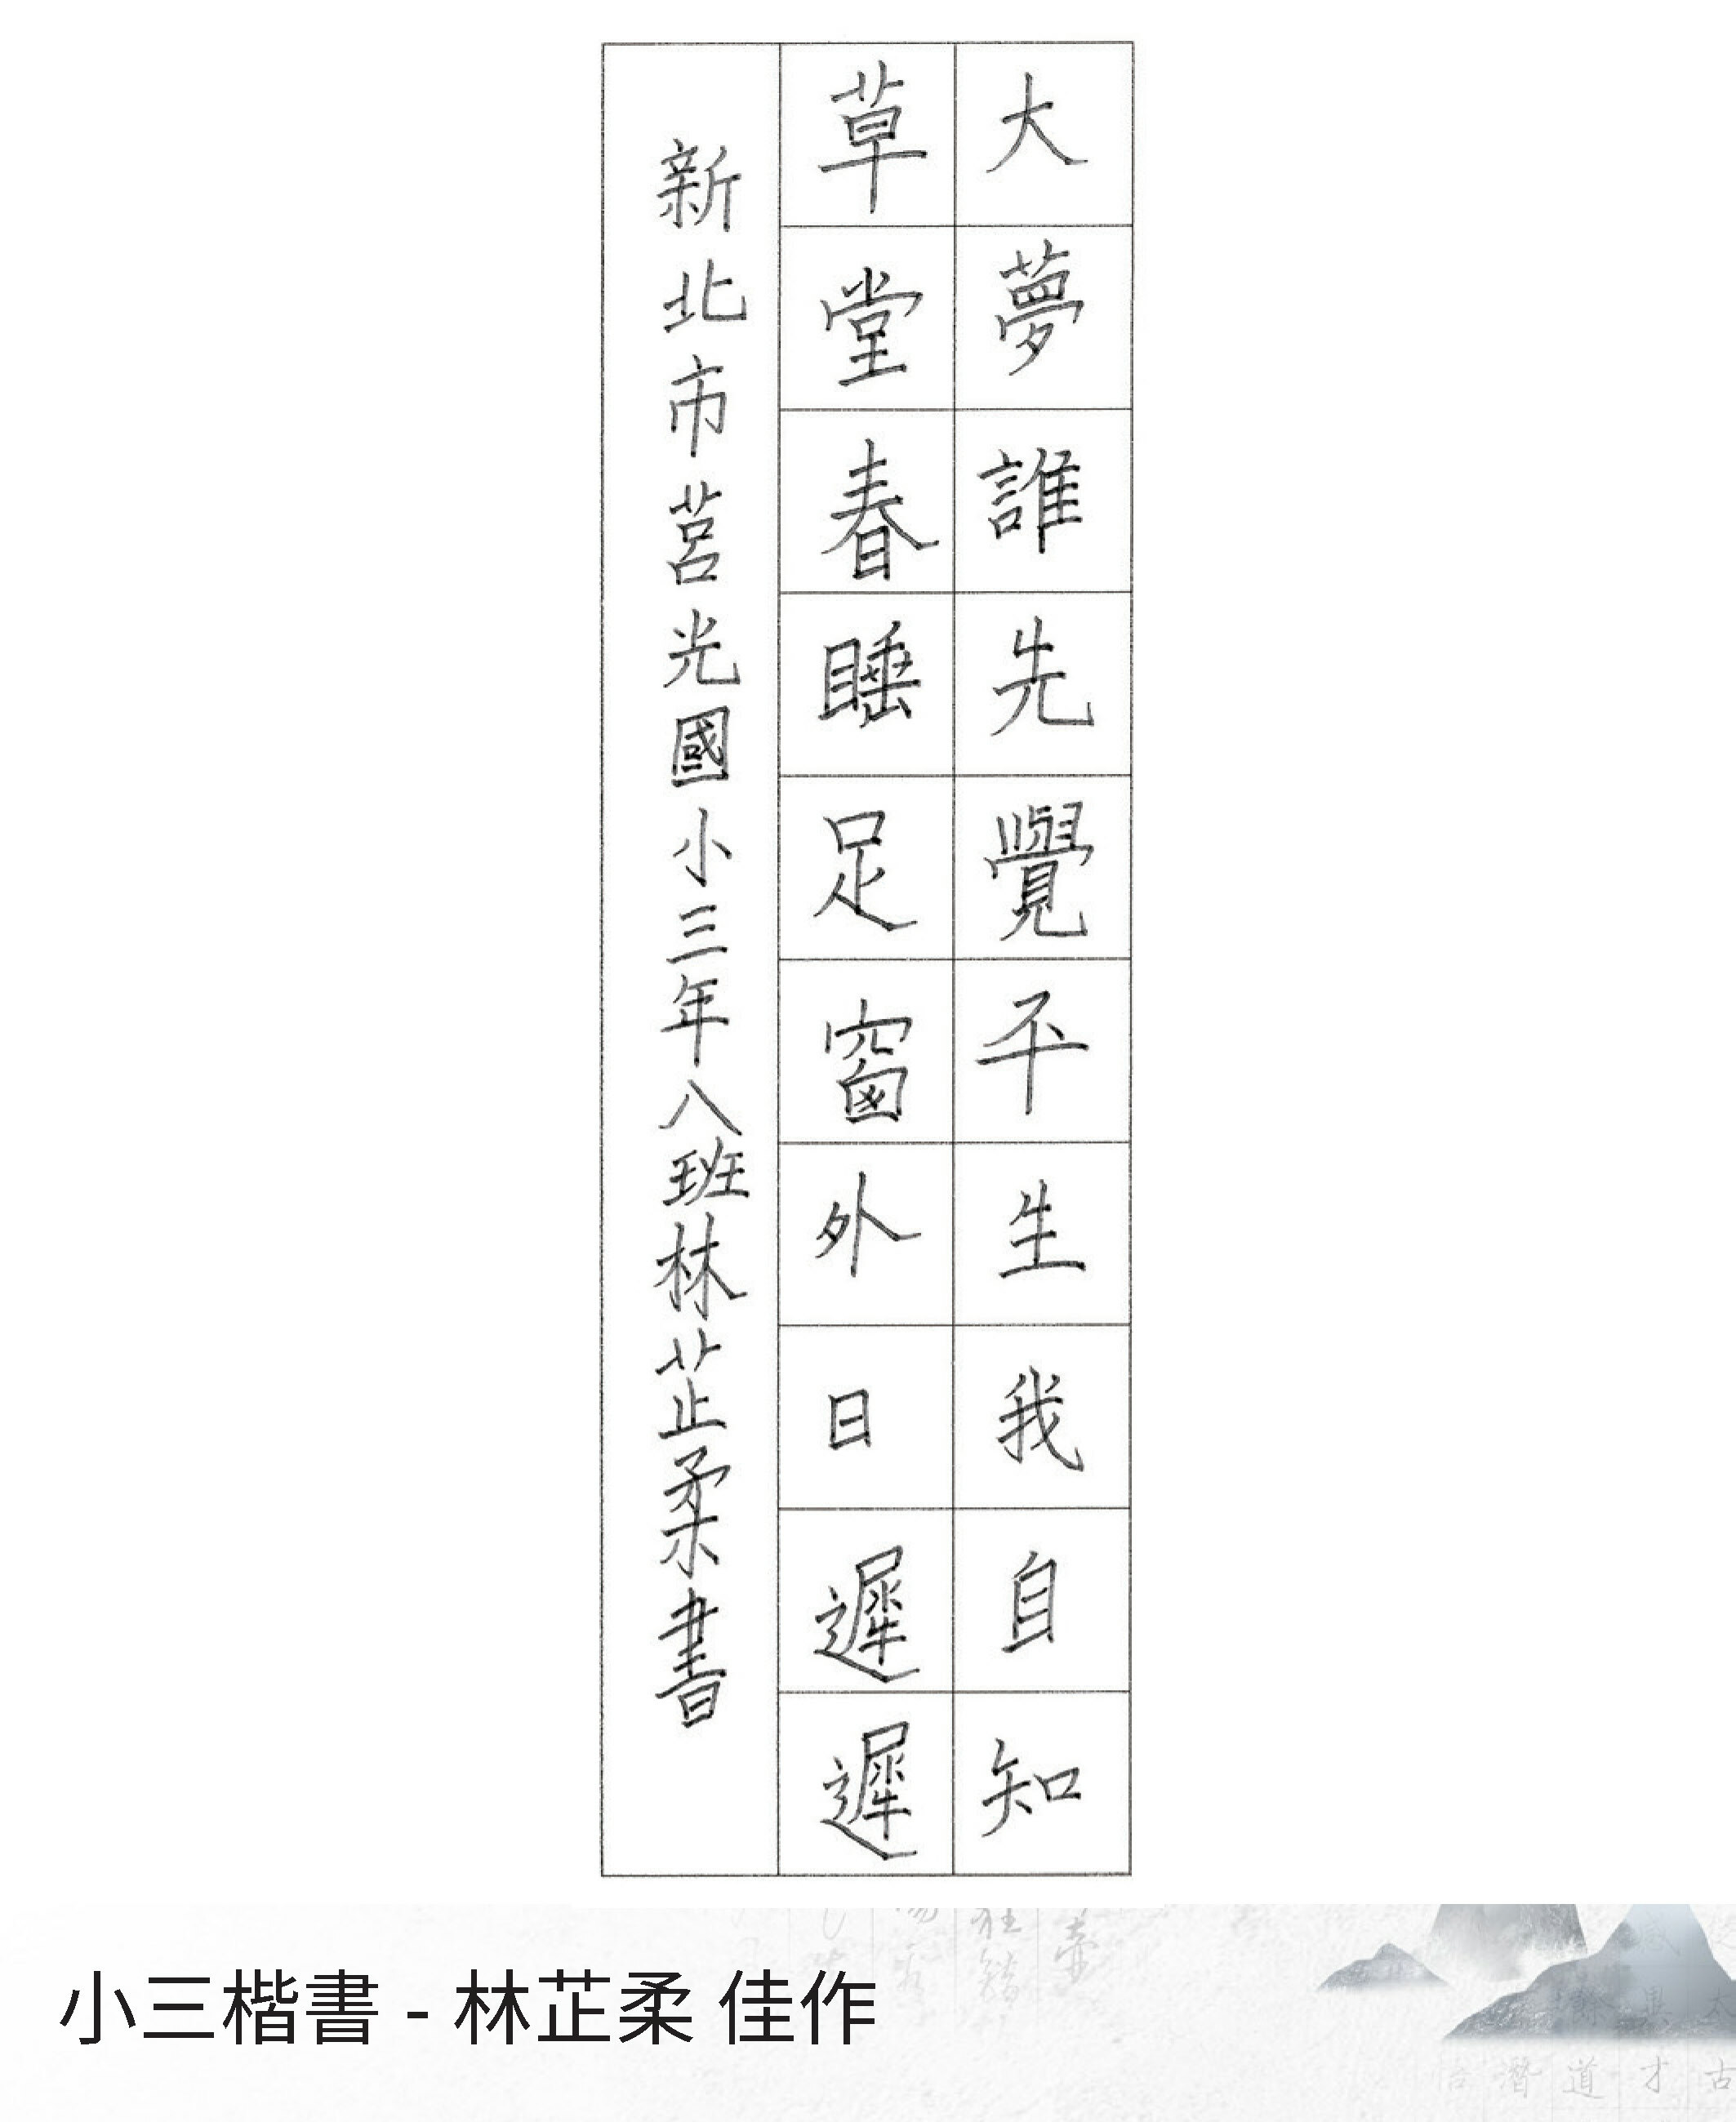 大夢誰先覺平生我自知
草堂春睡足窗外日遲遲
新北市莒光國小三年八班林芷柔書
小三楷書 - 林芷柔 佳作